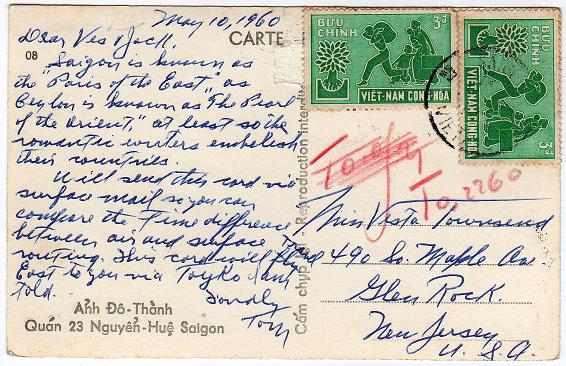 May 10, 1960
Dear Ves & Jack.
Saigon is known as
the "Paris of the East," as
Ceylon is known as "The Pearl
of the Orient," at least so the
romantic writers embelish
their countries.
Will send this card via
surface mail so you can
compare the time difference
between air and surface
routing. This card will fly
East to you via Toyko I am
told.
Fondly
Tom
08
CARTE
Ảnh Đô-Thành
Quán 23 Nguyễn-Huệ Saigon
Cấm chụp lại - Reproduction interdite
BƯU CHÍNH
3đ
VIỆT-NAM CỘNG-HÒA
BƯU CHÍNH
3đ
VIỆT-NAM CỘNG-HÒA
To, 2260
Miss Vesta Townsend
490 So. Maple Ave
Glen Rock.
New Jersey
U. S. A.